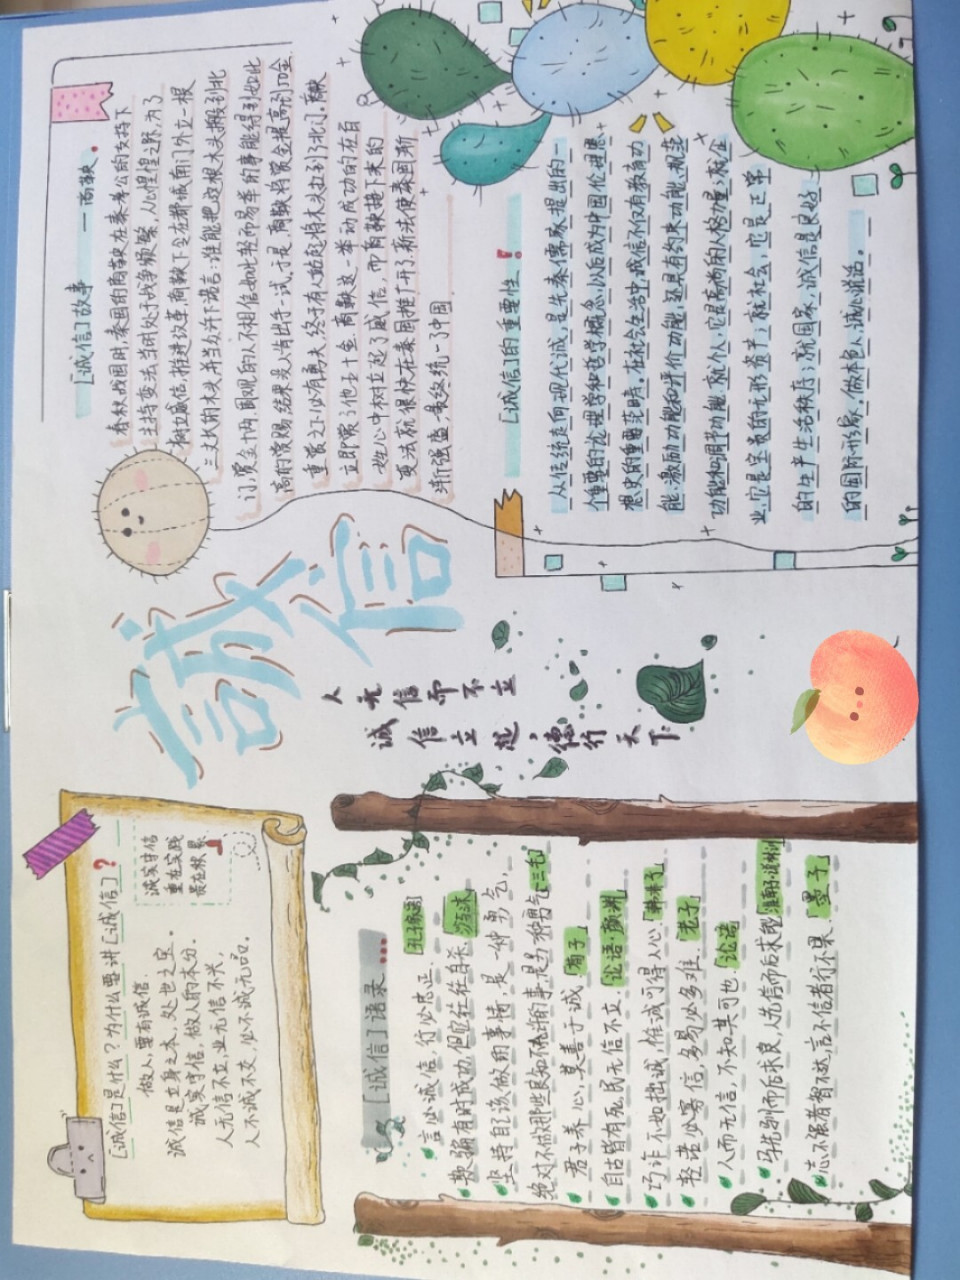 [诚信]是什么?为什么要讲[诚信]?
做人,要有诚信.
诚信是立身之本,处世之宝。
诚实守信,做人的本分.
人无信不立,业无信不兴,
人不诚不交,必不诚无品.
诚实守信
重在实践
贵在积累
诚信
人无信而不立
诚信立起,德行天下
[诚信]故事 ——商鞅
春秋战国时,秦国的商鞅在秦孝公的支持下
主持变法.当时处于战争频繁、人心惶惶之际,为了
树立威信,推进改革,商鞅下令在都城南门外立一根
三丈长的木头,并当众许下诺言:谁能把这根木头搬到北
门,赏金十两.围观的人不相信如此轻而易举的事能得到如此
高的赏赐,结果没人肯出手一试.于是,商鞅将赏金提高到50金
重赏之下必有勇夫,终于有人站起将木头扛到了北门.商鞅
立即赏了他五十金.商鞅这一举动成功的在百
姓心中树立起了威信,而商鞅接下来的
变法就很快在秦国推广开了.新法使秦国渐
渐强盛,最终统一了中国
[诚信]语录...
言必诚信,行必忠正. 孔子家语
欺骗有时成功,但它往往自杀.
坚持自己该做的事情是一种勇气,
绝对不做那些良知不允许的事是另一种勇气 三毛
君子养心,莫善于诚 荀子
自古皆有死,民无信不立. 论语·颜渊
巧诈不如拙诚,惟诚可得人心.
轻诺必寡信,多易必多难. 老子
人而无信,不知其可也. 论语
马先驯而后求良,人先信而后求能 淮南子·说林训
志不强者智不达,言不信者行不果. 墨子
[诚信]的重要性!
从传统走向现代诚,是先秦儒家提出的一
个重要的伦理学和哲学概念,以后成为中国伦理思
想史的重要范畴。在社会生活中,诚信不仅有教育功
能.激励功能和评价功能,还具有约束功能,规范
功能和调节功能.就个人,它是高尚的人格力量;就企
业,它是宝贵的无形资产;就社会,它是正常
的生产生活秩序;就国家,诚信是良好
的国际形象。做本色人,说诚心话。